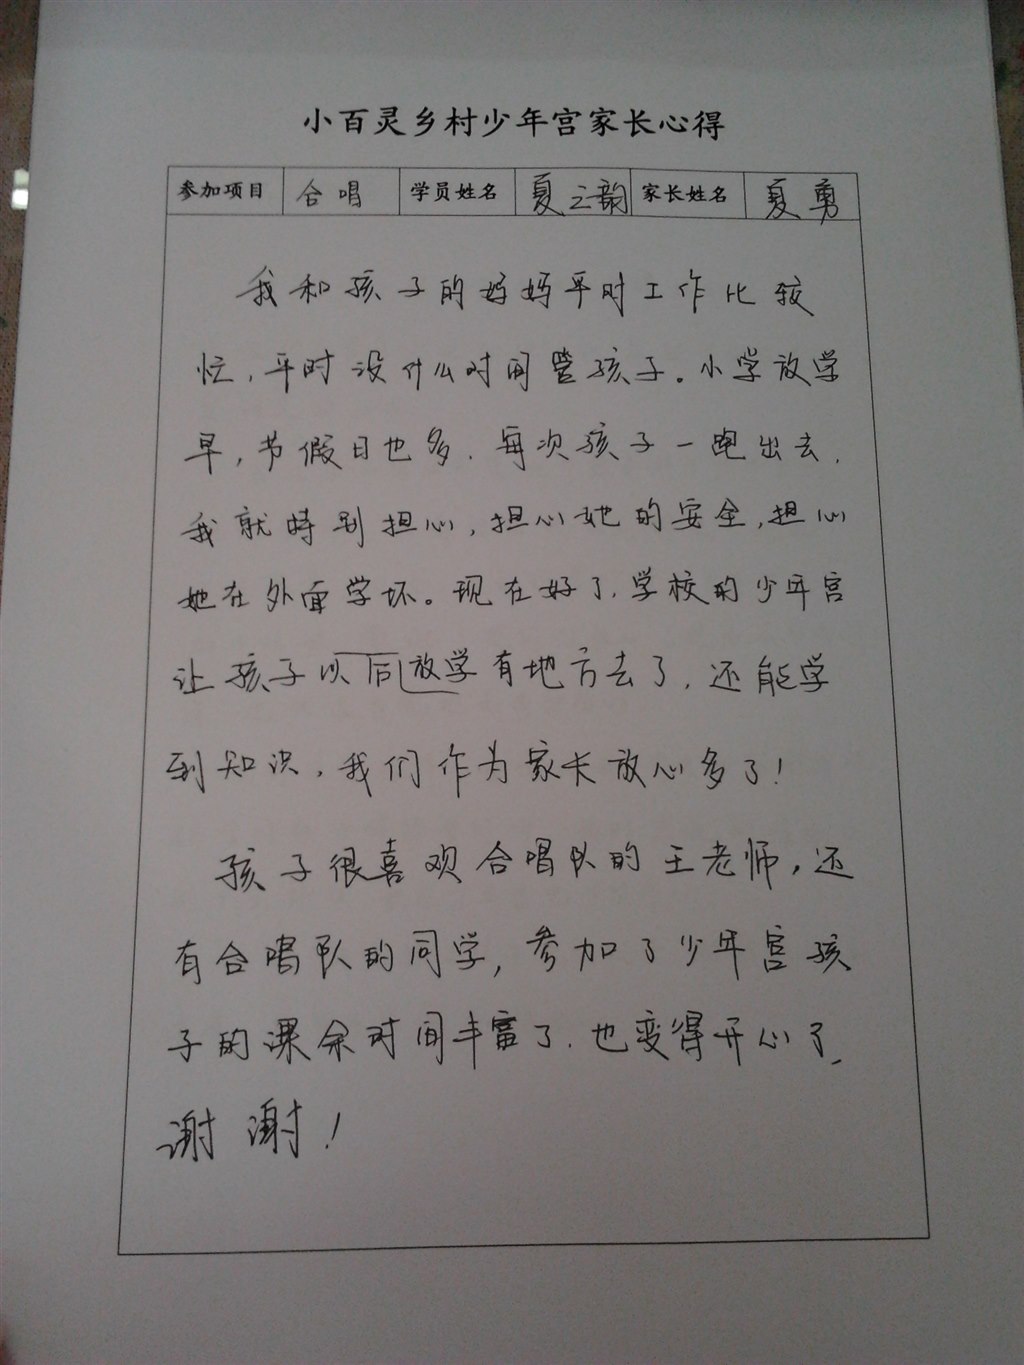 小百灵乡村少年宫家长心得
参加项目 合唱 学员姓名 夏云韵 家长姓名 夏勇
我和孩子的妈妈平时工作比较
忙,平时没什么时间管孩子。小学放学
早,节假日也多.每次孩子一跑出去,
我就特别担心,担心她的安全,担心
她在外面学坏。现在好了,学校的少年宫
让孩子以后放学有地方去了,还能学
到知识,我们作为家长放心多了!
孩子很喜欢合唱队的王老师,还
有合唱队的同学,参加了少年宫孩
子的课余时间丰富了.也变得开心了,
谢谢!